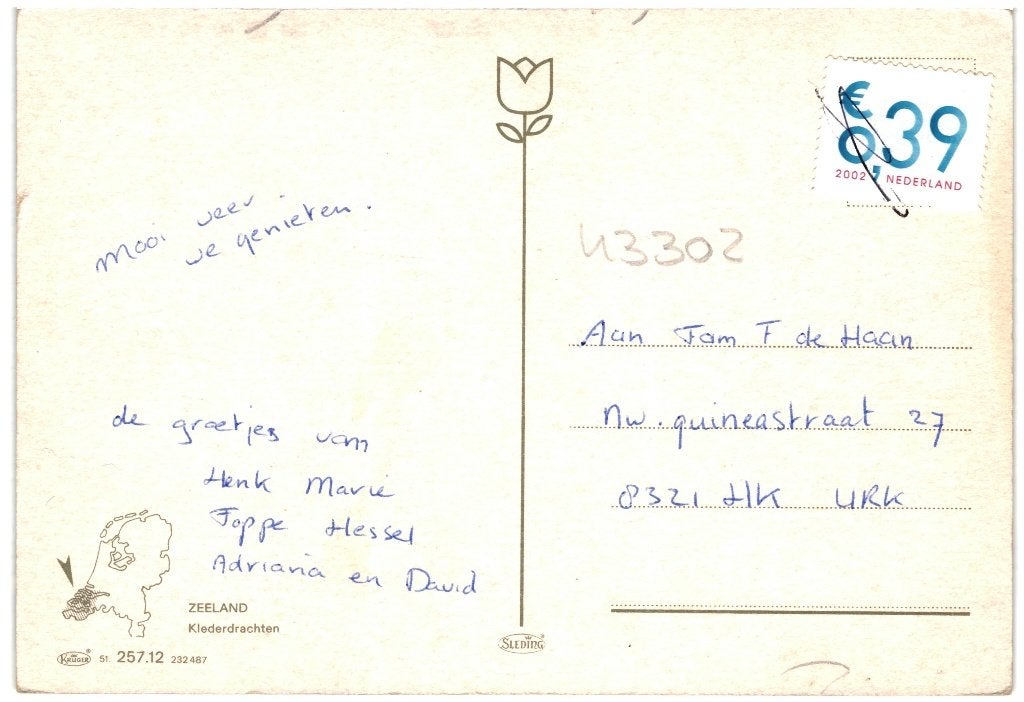 €
0,39
2002 NEDERLAND
Mooi weer
we genieten.
43302
Aan Fam F de Haan
Nw. guineastraat 27
8321 HK URK
de groetjes van
Henk Marie
Joppe Hessel
Adriana en David
ZEELAND
Klederdrachten
KRÜGER 51. 257.12 232487
SLEDING